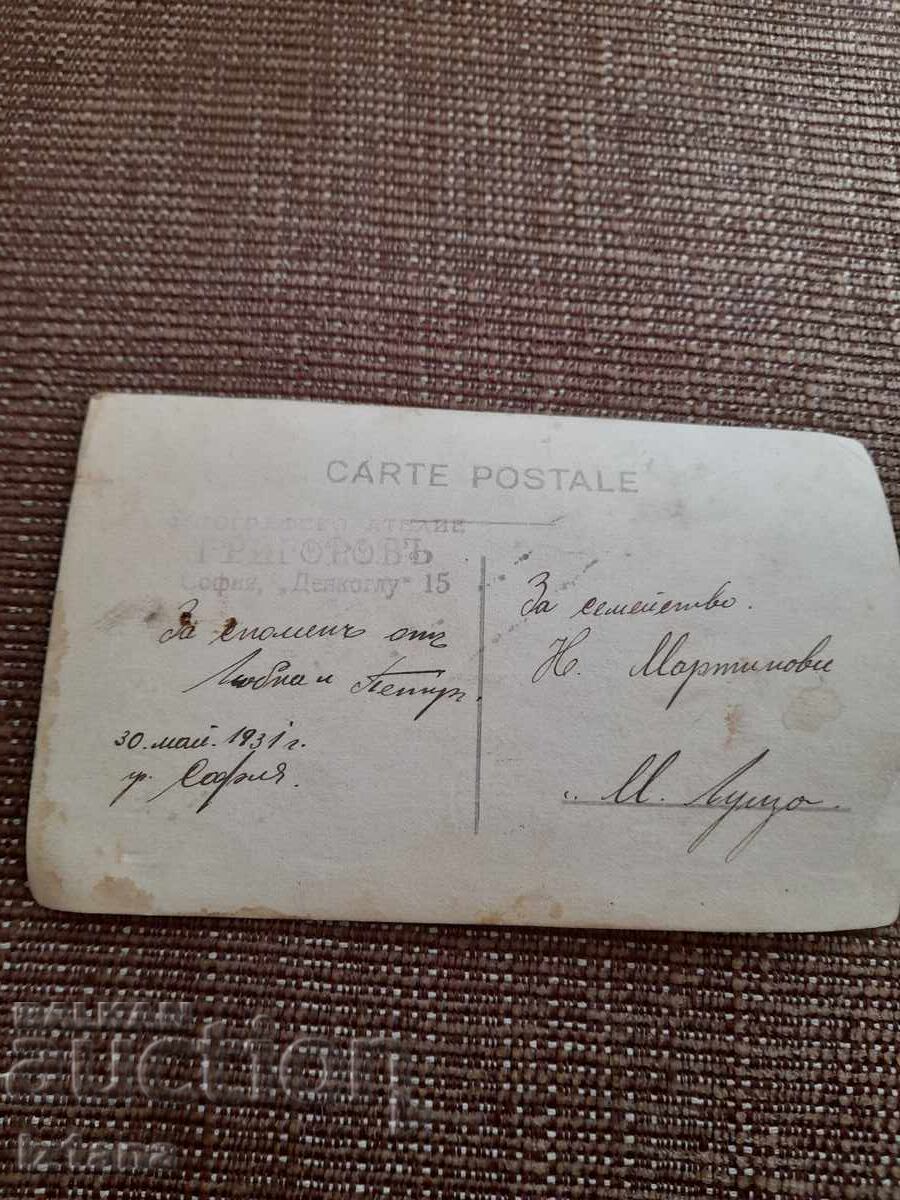 CARTE POSTALE
ФОТОГРАФСКО АТЕЛИЕ
ГРИГОРОВЪ
София, „Денкоглу" 15
За споменъ отъ
Любка и Петъръ.
30. май. 1931 г.
гр. София.
За семейство.
Н. Мартинови
М.
BALKAN
auction
iztana